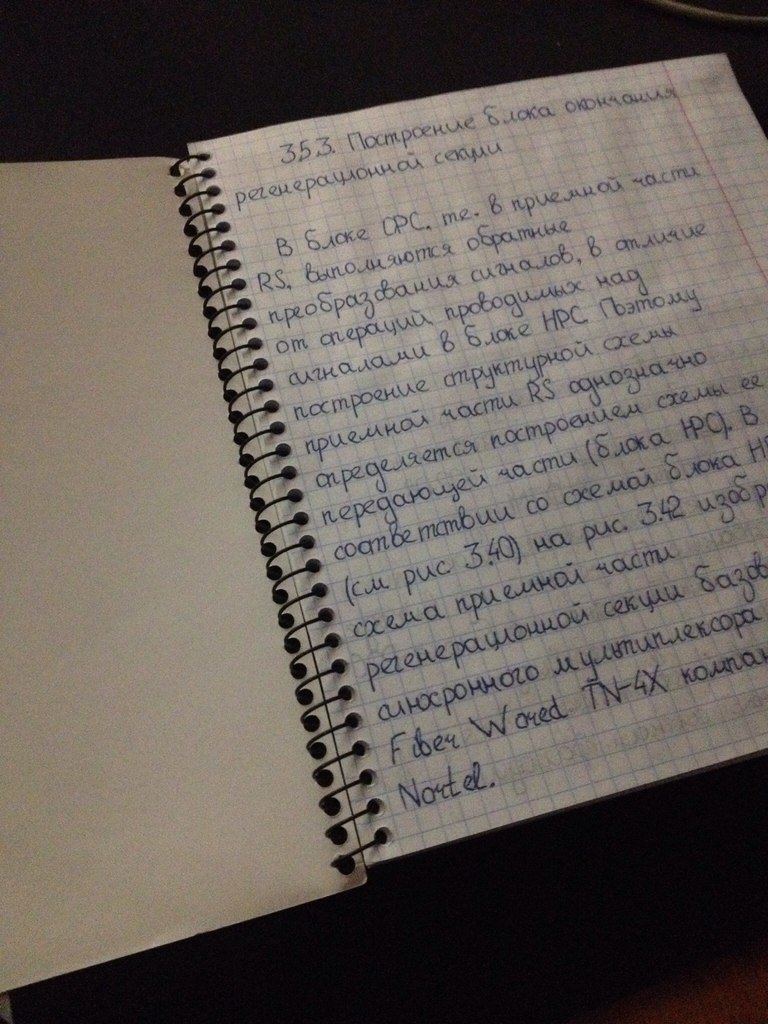 3.5.3. Построение блока окончания
регенерационной секции
В блоке ОРС, т.е. в приемной части
RS, выполняются обратные
преобразования сигналов, в отличие
от операций проводимых над
сигналами в блоке НРС. Поэтому
построение структурной схемы
приемной части RS однозначно
определяется построением схемы ее
передающей части (блока НРС). В
соответствии со схемой блока
(см. рис 3.40) на рис. 3.42
схема приемной части
регенерационной секции
синхронного мультиплексора
Fiber Wored TN-4X
Nortel.